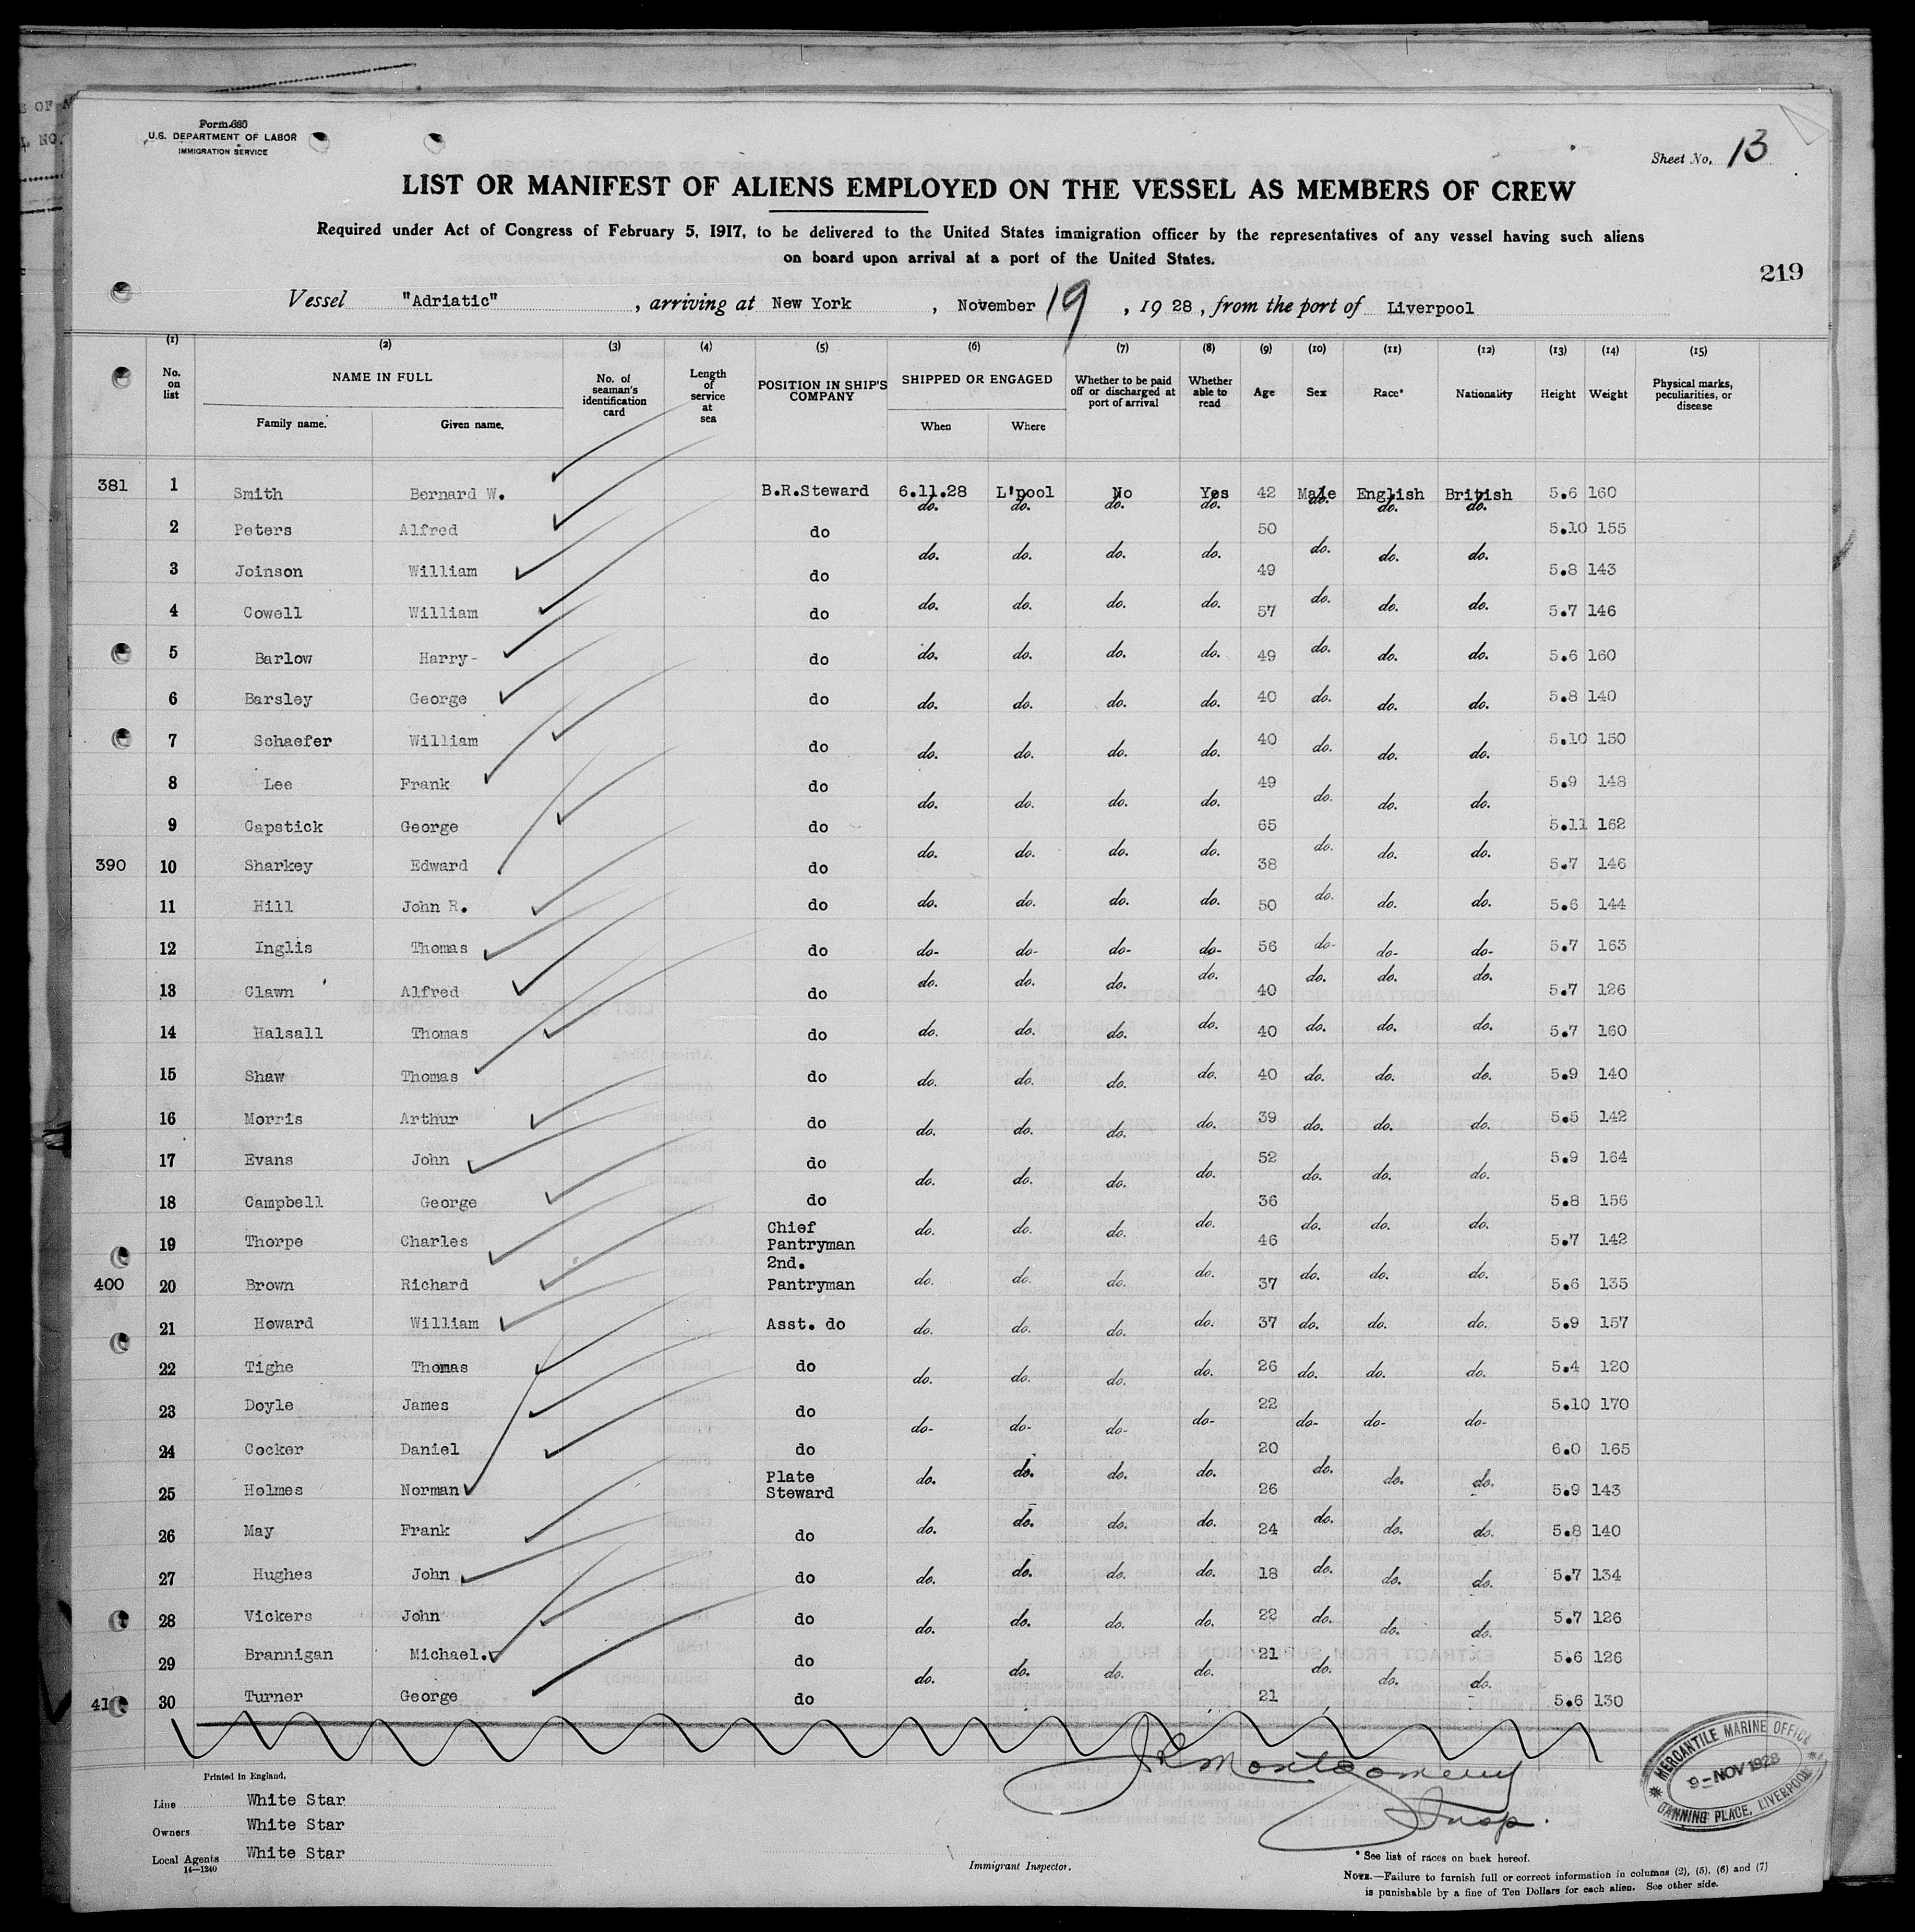 Form 680
U.S. DEPARTMENT OF LABOR
IMMIGRATION SERVICE
Sheet No. 13
LIST OR MANIFEST OF ALIENS EMPLOYED ON THE VESSEL AS MEMBERS OF CREW
Required under Act of Congress of February 5, 1917, to be delivered to the United States immigration officer by the representatives of any vessel having such aliens
on board upon arrival at a port of the United States.
219
Vessel "Adriatic", arriving at New York, November 19, 1928, from the port of Liverpool
(1) (2) (3) (4) (5) (6) (7) (8) (9) (10) (11) (12) (13) (14) (15)
No. on list NAME IN FULL Family name. Given name. No. of seaman's identification card Length of service at sea POSITION IN SHIP'S COMPANY SHIPPED OR ENGAGED When Where Whether to be paid off or discharged at port of arrival Whether able to read Age Sex Race* Nationality Height Weight Physical marks, peculiarities, or disease
381 1 Smith Bernard W. B.R.Steward 6.11.28 L'pool No Yes 42 Male English British 5.6 160
2 Peters Alfred do do. do. do. do. 50 do. do. do. 5.10 155
3 Joinson William do do. do. do. do. 49 do. do. do. 5.8 143
4 Cowell William do do. do. do. do. 57 do. do. do. 5.7 146
5 Barlow Harry- do do. do. do. do. 49 do. do. do. 5.6 160
6 Barsley George do do. do. do. do. 40 do. do. do. 5.8 140
7 Schaefer William do do. do. do. do. 40 do. do. do. 5.10 150
8 Lee Frank do do. do. do. do. 49 do. do. do. 5.9 148
9 Capstick George do do. do. do. do. 65 do. do. do. 5.11 162
390 10 Sharkey Edward do do. do. do. do. 38 do. do. do. 5.7 146
11 Hill John R. do do. do. do. do. 50 do. do. do. 5.6 144
12 Inglis Thomas do do- do- do- do- 56 do- do- do- 5.7 163
13 Clawn Alfred do do. do. do. do. 40 do. do. do. 5.7 126
14 Halsall Thomas do do. do. do. do. 40 do. do. do. 5.7 160
15 Shaw Thomas do do. do. do. do. 40 do. do. do. 5.9 140
16 Morris Arthur do do. do. do. do. 39 do. do. do. 5.5 142
17 Evans John do do. do. do. do. 52 do. do. do. 5.9 164
18 Campbell George do do. do. do. do. 36 do. do. do. 5.8 156
19 Thorpe Charles Chief Pantryman do. do. do. do. 46 do. do. do. 5.7 142
400 20 Brown Richard 2nd. Pantryman do. do. do. do. 37 do. do. do. 5.6 135
21 Howard William Asst. do do. do. do. do. 37 do. do. do. 5.9 157
22 Tighe Thomas do do. do. do. do. 26 do. do. do. 5.4 120
23 Doyle James do do- do- do- do- 22 do- do- do- 5.10 170
24 Cocker Daniel do 20 6.0 165
25 Holmes Norman Plate Steward do. do. do. do. 26 do. do. do. 5.9 143
26 May Frank do do. do. do. do. 24 do. do. do. 5.8 140
27 Hughes John do do. do. do. do. 18 do. do. do. 5.7 134
28 Vickers John do do. do. do. do. 22 do. do. do. 5.7 126
29 Brannigan Michael. do do. do. do. do. 21 do. do. do. 5.6 126
41 30 Turner George do 21 5.6 130
Printed in England.
Line White Star
Owners White Star
Local Agents White Star
14—1240
Montgomery
Insp.
Immigrant Inspector.
MERCANTILE MARINE OFFICE
9 - NOV 1928
CANNING PLACE, LIVERPOOL
* See list of races on back hereof.
NOTE.—Failure to furnish full or correct information in columns (2), (5), (6) and (7)
is punishable by a fine of Ten Dollars for each alien. See other side.